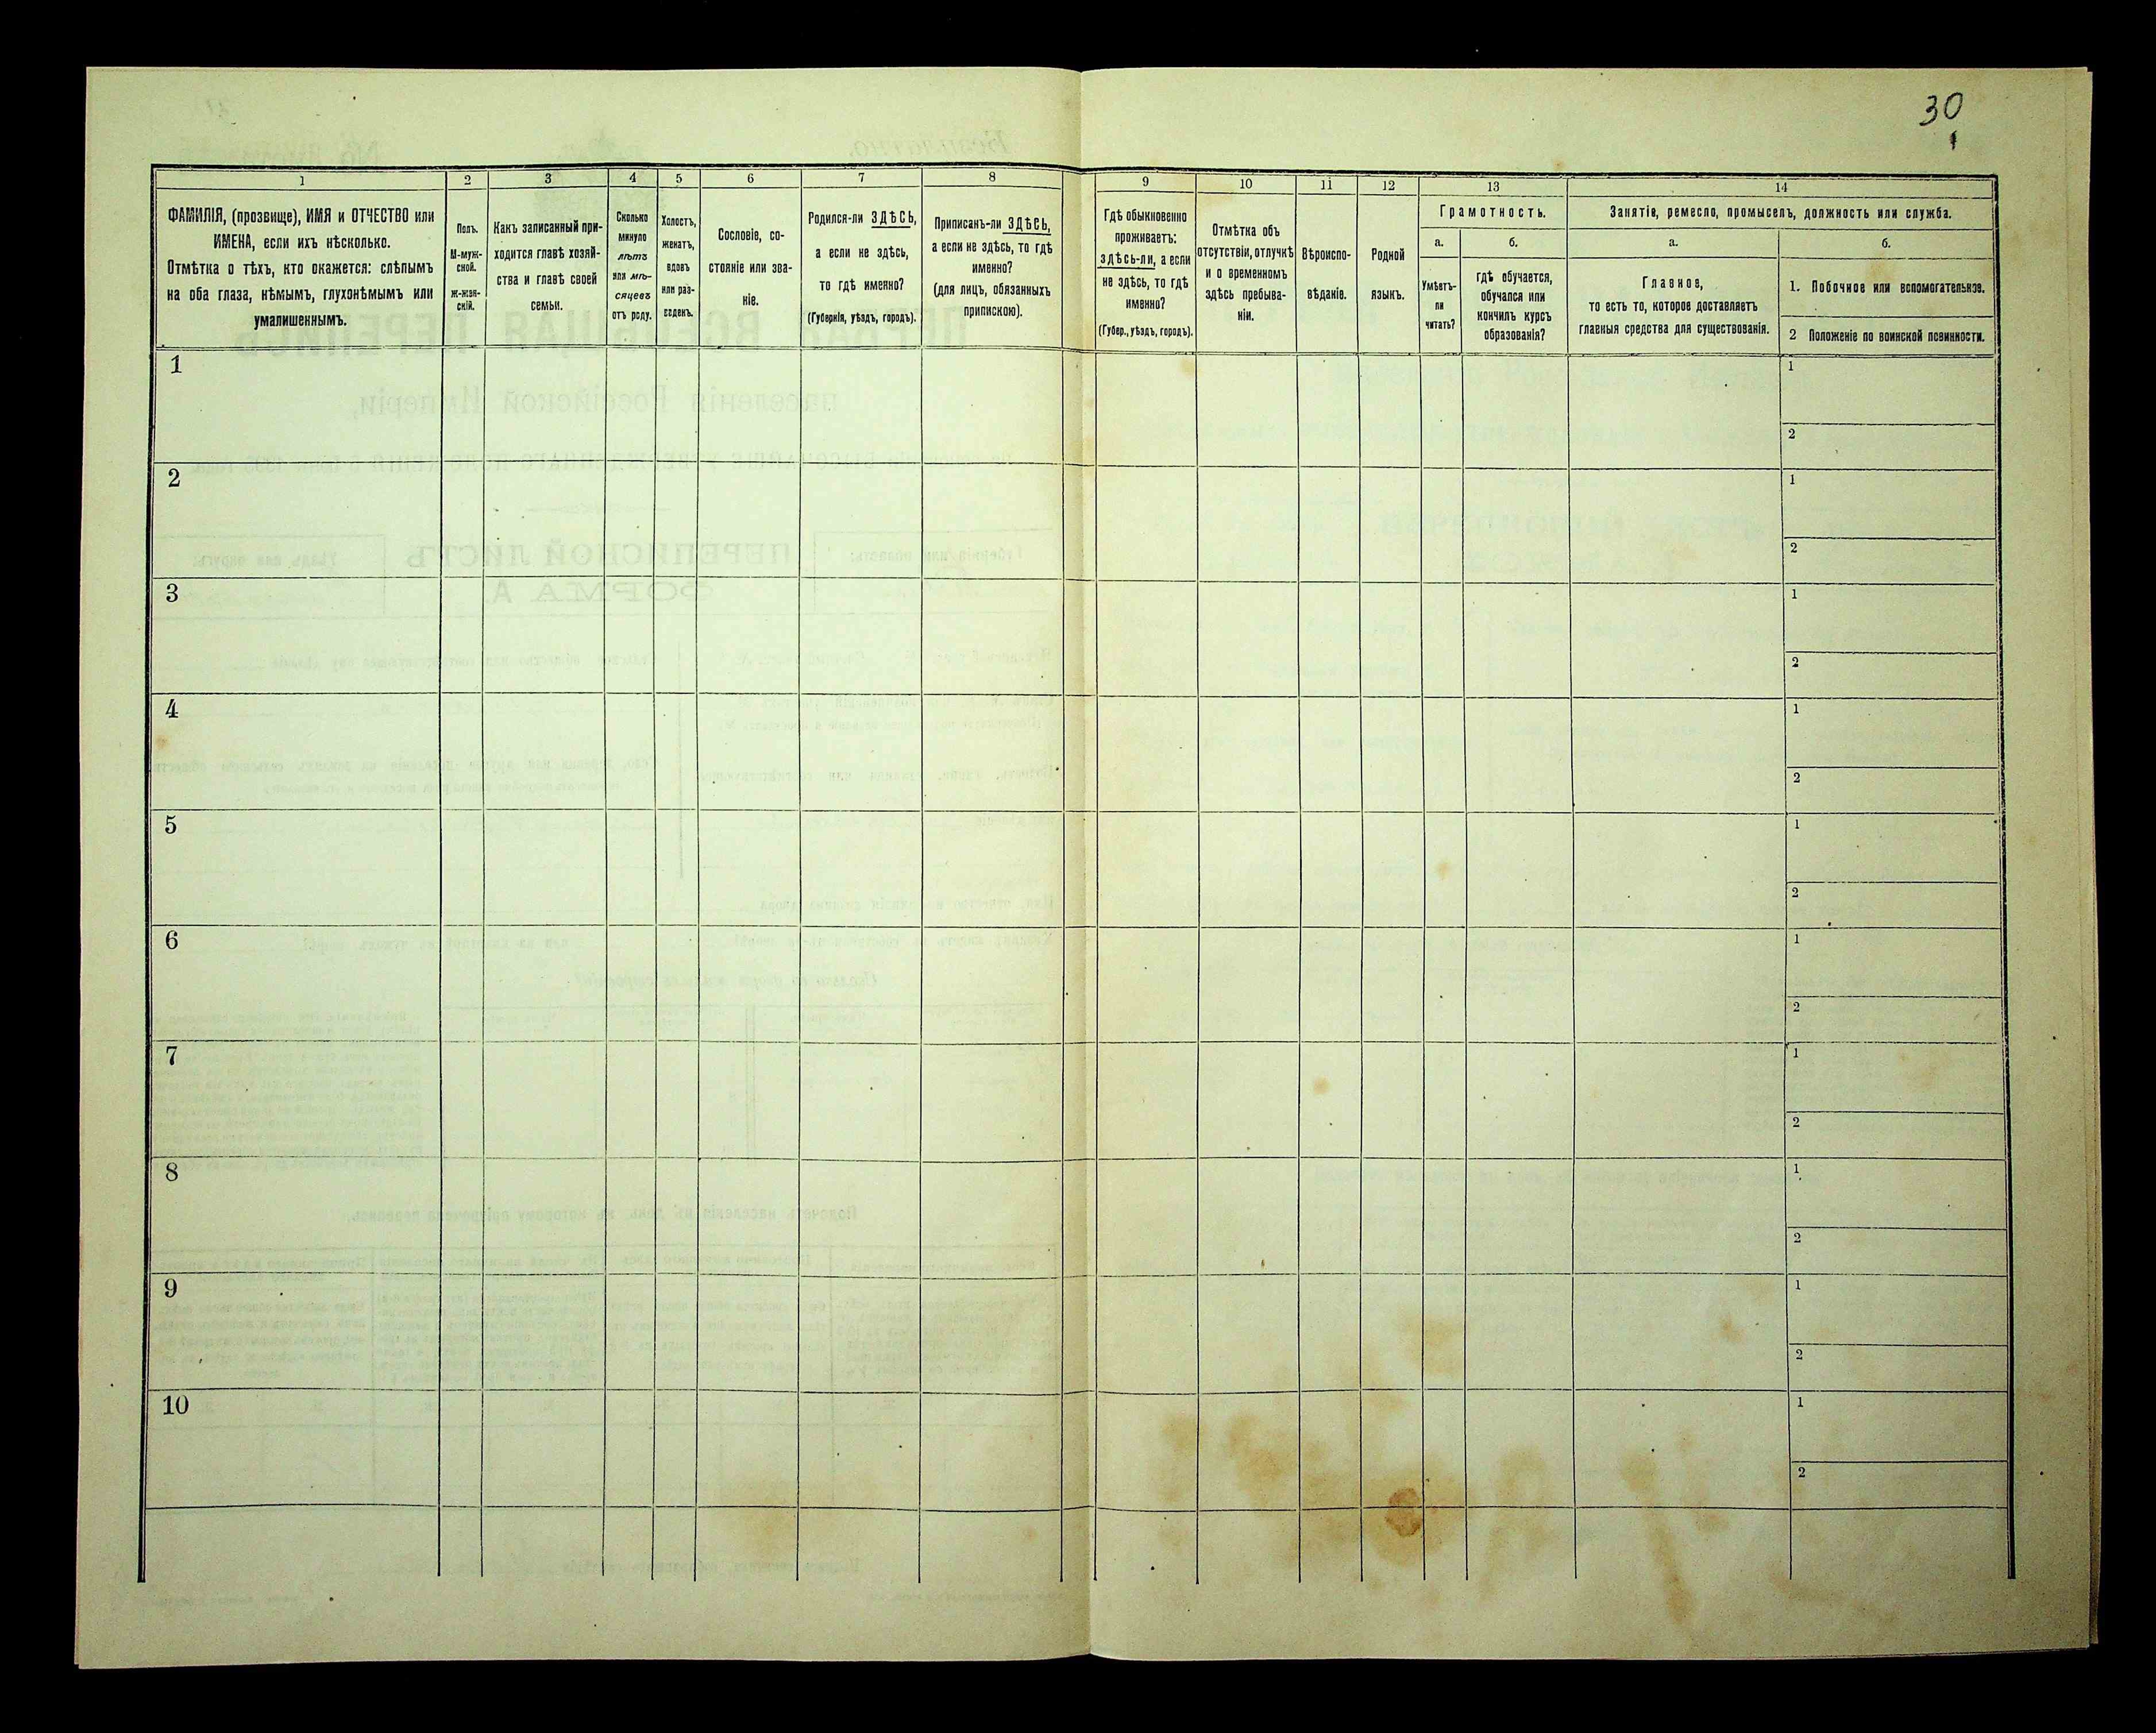 30
1
ФАМИЛІЯ, (прозвище), ИМЯ и ОТЧЕСТВО или
ИМЕНА, если ихъ нѣсколько.
Отмѣтка о тѣхъ, кто окажется: слѣпымъ
на оба глаза, нѣмымъ, глухонѣмымъ или
умалишеннымъ.
2
Полъ.
М-муж-
ской.
ж-жен-
скій.
3
Какъ записанный при-
ходится главѣ хозяй-
ства и главѣ своей
семьи.
4
Сколько
минуло
лѣтъ
или мѣ-
сяцевъ
отъ роду.
5
Холостъ,
женатъ,
вдовъ
или раз-
веденъ.
6
Сословіе, со-
стояніе или зва-
ніе.
7
Родился-ли ЗДѢСЬ,
а если не здѣсь,
то гдѣ именно?
(Губернія, уѣздъ, городъ).
8
Приписанъ-ли ЗДѢСЬ,
а если не здѣсь, то гдѣ
именно?
(для лицъ, обязанныхъ
припискою).
9
Гдѣ обыкновенно
проживаетъ:
здѣсь-ли, а если
не здѣсь, то гдѣ
именно?
(Губер., уѣздъ, городъ).
10
Отмѣтка объ
отсутствіи, отлучкѣ
и о временномъ
здѣсь пребыва-
ніи.
11
Вѣроиспо-
вѣданіе.
12
Родной
языкъ.
13
Грамотность.
а.
Умѣетъ-
ли
читать?
б.
гдѣ обучается,
обучался или
кончилъ курсъ
образованія?
14
Занятіе, ремесло, промыселъ, должность или служба.
а.
Главное,
то есть то, которое доставляетъ
главныя средства для существованія.
б.
1. Побочное или вспомогательное.
2 Положеніе по воинской повинности.
1
1
2
2
1
2
3
1
2
4
1
2
5
1
2
6
1
2
7
1
2
8
1
2
9
1
2
10
1
2